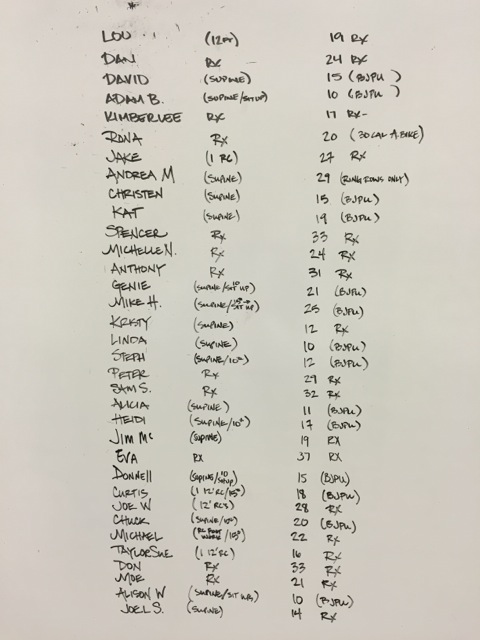 LOU (12FT) 19 RX
DAN RX 24 RX
DAVID (SUPINE) 15 (BJPU)
ADAM B. (SUPINE/SIT UP) 10 (BJPU)
KIMBERLEE RX 17 RX-
RONA RX 20 (30 CAL A.BIKE)
JAKE (1 RC) 27 RX
ANDREA M (SUPINE) 29 (RING ROWS ONLY)
CHRISTEN (SUPINE) 15 (BJPU)
KAT (SUPINE) 19 (BJPU)
SPENCER RX 33 RX
MICHELLE N. RX 24 RX
ANTHONY RX 31 RX
GENIE (SUPINE/10 SIT UP) 21 (BJPU)
MIKE H. (SUPINE/SIT UP) 25 (BJPU)
KRISTY (SUPINE) 12 RX
LINDA (SUPINE) 10 (BJPU)
STEPH (SUPINE/10") 12 (BJPU)
PETER RX 29 RX
SAM S. RX 32 RX
ALICIA (SUPINE) 11 (BJPU)
HEIDI (SUPINE/10") 17 (BJPU)
JIM MC (SUPINE) 19 RX
EVA RX 37 RX
DONNELL (SUPINE/10 SITUP) 15 (BJPU)
CURTIS (1 12' RC/15") 18 (BJPU)
JOE W (12' RCS) 28 RX
CHUCK (SUPINE/10") 20 (BJPU)
MICHAEL (RC FOOT WORK/10") 22 RX
TAYLOR SUE (1 12' RC) 16 RX
DON RX 33 RX
MOE RX 21 RX
ALISON W (SUPINE/SIT UPS) 10 (BJPU)
JOEL S. (SUPINE) 14 RX